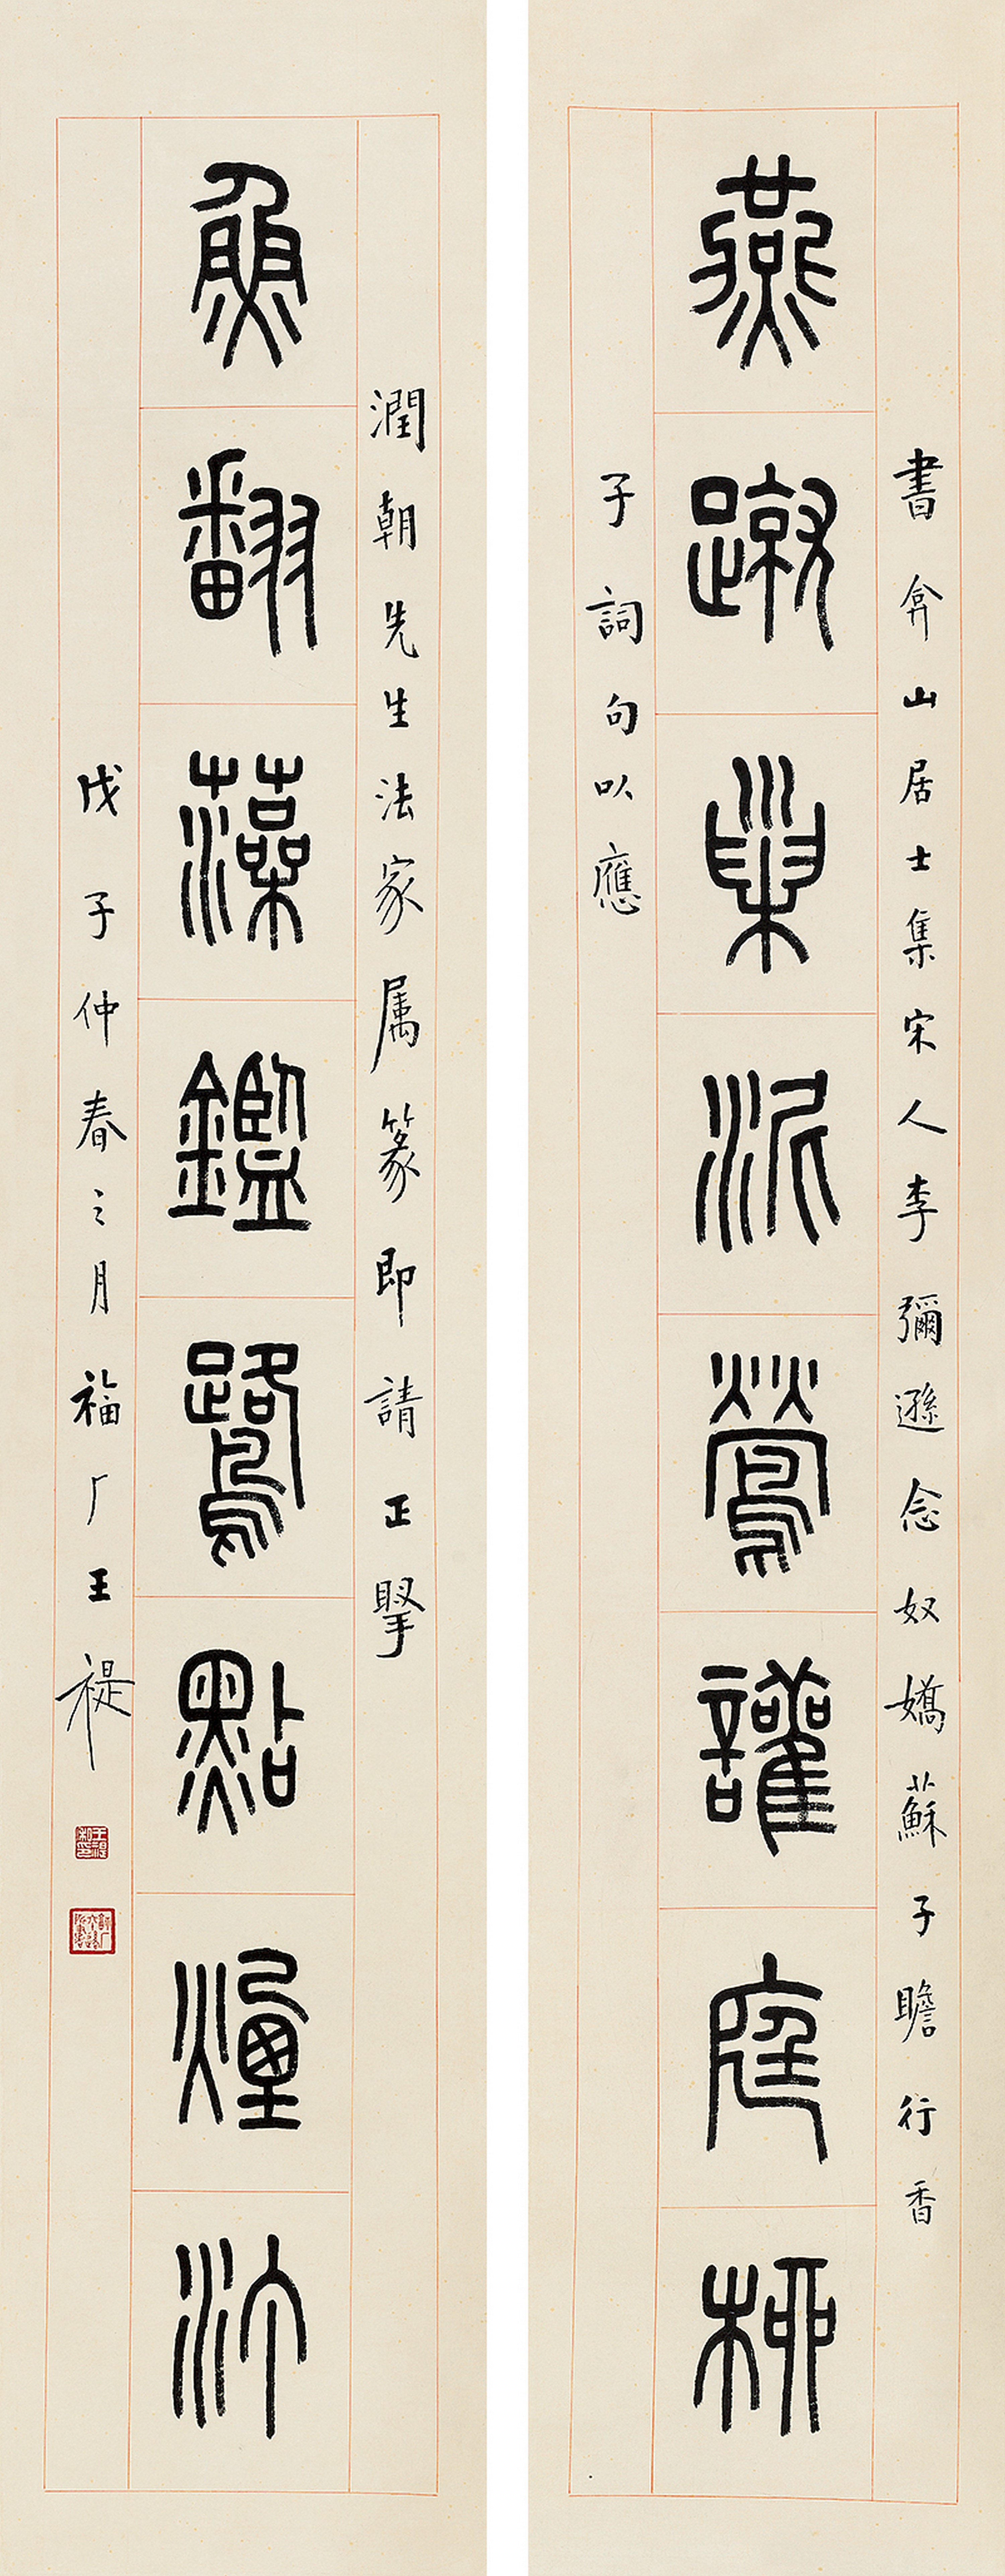 書弇山居士集宋人李彌遜念奴嬌蘇子瞻行香
燕蹴巢泥鶯讙庭柳
子詞句以應
潤朝先生法家属篆即請正掔
魚翻藻鑑鷺點煙汀
戊子仲春之月福厂王禔
王禔私印